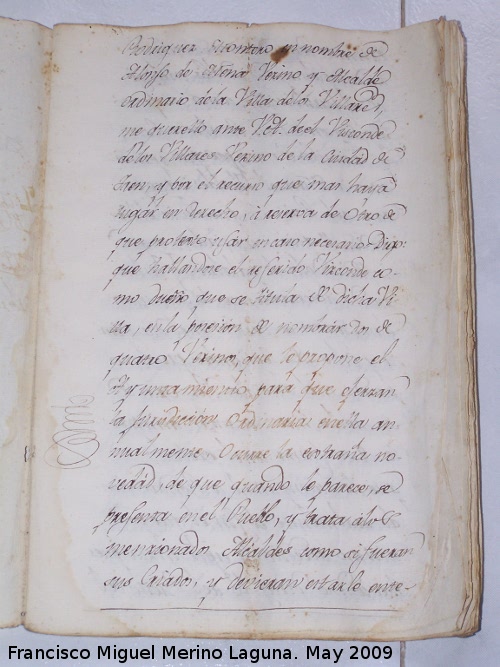 Rodriguez Montero en nombre de
Alonso de Vecino y Alcalde
ordinario de la Villa de los Villares,
me querello ante V.A. de el Visconde
de los Villares Vecino de la Ciudad de
Jaen, y por el recurso que mas haya
lugar en derecho, à reserva de otro de
que protexto usar en caso necesario. Digo:
que hallandose el referido Vizconde co-
mo Dueño que se titula de dicha Vi-
lla, en la posesion de nombrar dos de
quatro Vecinos, que le propone el
Ayuntamiento para que exerzan
la Jurisdiccion Ordinaria en ella an-
nualmente. Ocurre la extraña no-
vedad, de que quando le parece, se
presenta en el Pueblo, y trata à los
mencionados Alcaldes como si fueran
sus Criados, y devieran estarle ente-
Francisco Miguel Merino Laguna. May 2009